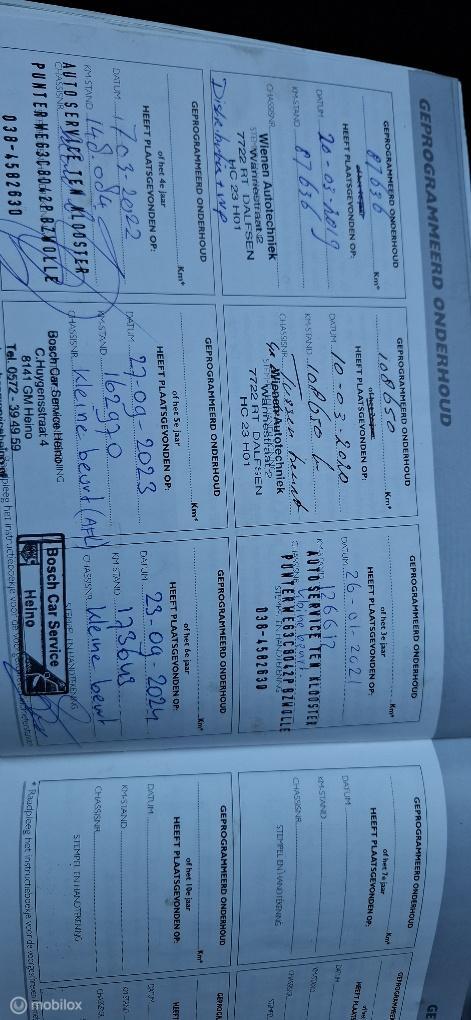 GEPROGRAMMEERD ONDERHOUD
GEPROGRAMMEERD ONDERHOUD
87656 Km*
HEEFT PLAATSGEVONDEN OP:
DATUM 20-03-2019
KM-STAND 87656
Wienen Autotechniek
CHASSISNR.
Wannestraat 2
7722 RT DALFSEN
HC 23 H01
GEPROGRAMMEERD ONDERHOUD
108650 Km*
HEEFT PLAATSGEVONDEN OP:
DATUM 10-03-2020
KM-STAND 108650
CHASSISNR. Tussen beurt
Wienen Autotechniek
Wannestraat 2
7722 RT DALFSEN
HC 23 H01
GEPROGRAMMEERD ONDERHOUD
Km*
of het 3e jaar
HEEFT PLAATSGEVONDEN OP:
DATUM 26-01-2021
KM-STAND
AUTOSERVICE TEN KLOOSTER
CHASSISNR. Kleine beurt
STEMPEL EN HANDTEKENING
038-4582830
GEPROGRAMMEERD ONDERHOUD
Km*
of het 4e jaar
HEEFT PLAATSGEVONDEN OP:
Distributie + WP
DATUM 17-3-2022
KM-STAND 148.084
AUTOSERVICE TEN KLOOSTER
CHASSISNR.
038-4582830
GEPROGRAMMEERD ONDERHOUD
Km*
of het 5e jaar
HEEFT PLAATSGEVONDEN OP:
DATUM 27-09-2023
KM-STAND 162970
CHASSISNR. Kleine beurt
Bosch Car Service Heino
C.Huygensstraat 4
8141 GM Heino
Tel. 0572 - 39 49 59
GEPROGRAMMEERD ONDERHOUD
Km*
of het 6e jaar
HEEFT PLAATSGEVONDEN OP:
DATUM 23-09-2024
KM-STAND
CHASSISNR. Kleine beurt
STEMPEL EN HANDTEKENING
Bosch Car Service
Heino
GEPROGRAMMEERD ONDERHOUD
Km*
of het 7e jaar
HEEFT PLAATSGEVONDEN OP:
DATUM
KM-STAND
CHASSISNR.
STEMPEL EN HANDTEKENING
GEPROGRAMMEERD ONDERHOUD
Km*
of het 10e jaar
HEEFT PLAATSGEVONDEN OP:
DATUM
KM-STAND
CHASSISNR.
STEMPEL EN HANDTEKENING
* Raadpleeg het instructieboekje voor de
mobilox